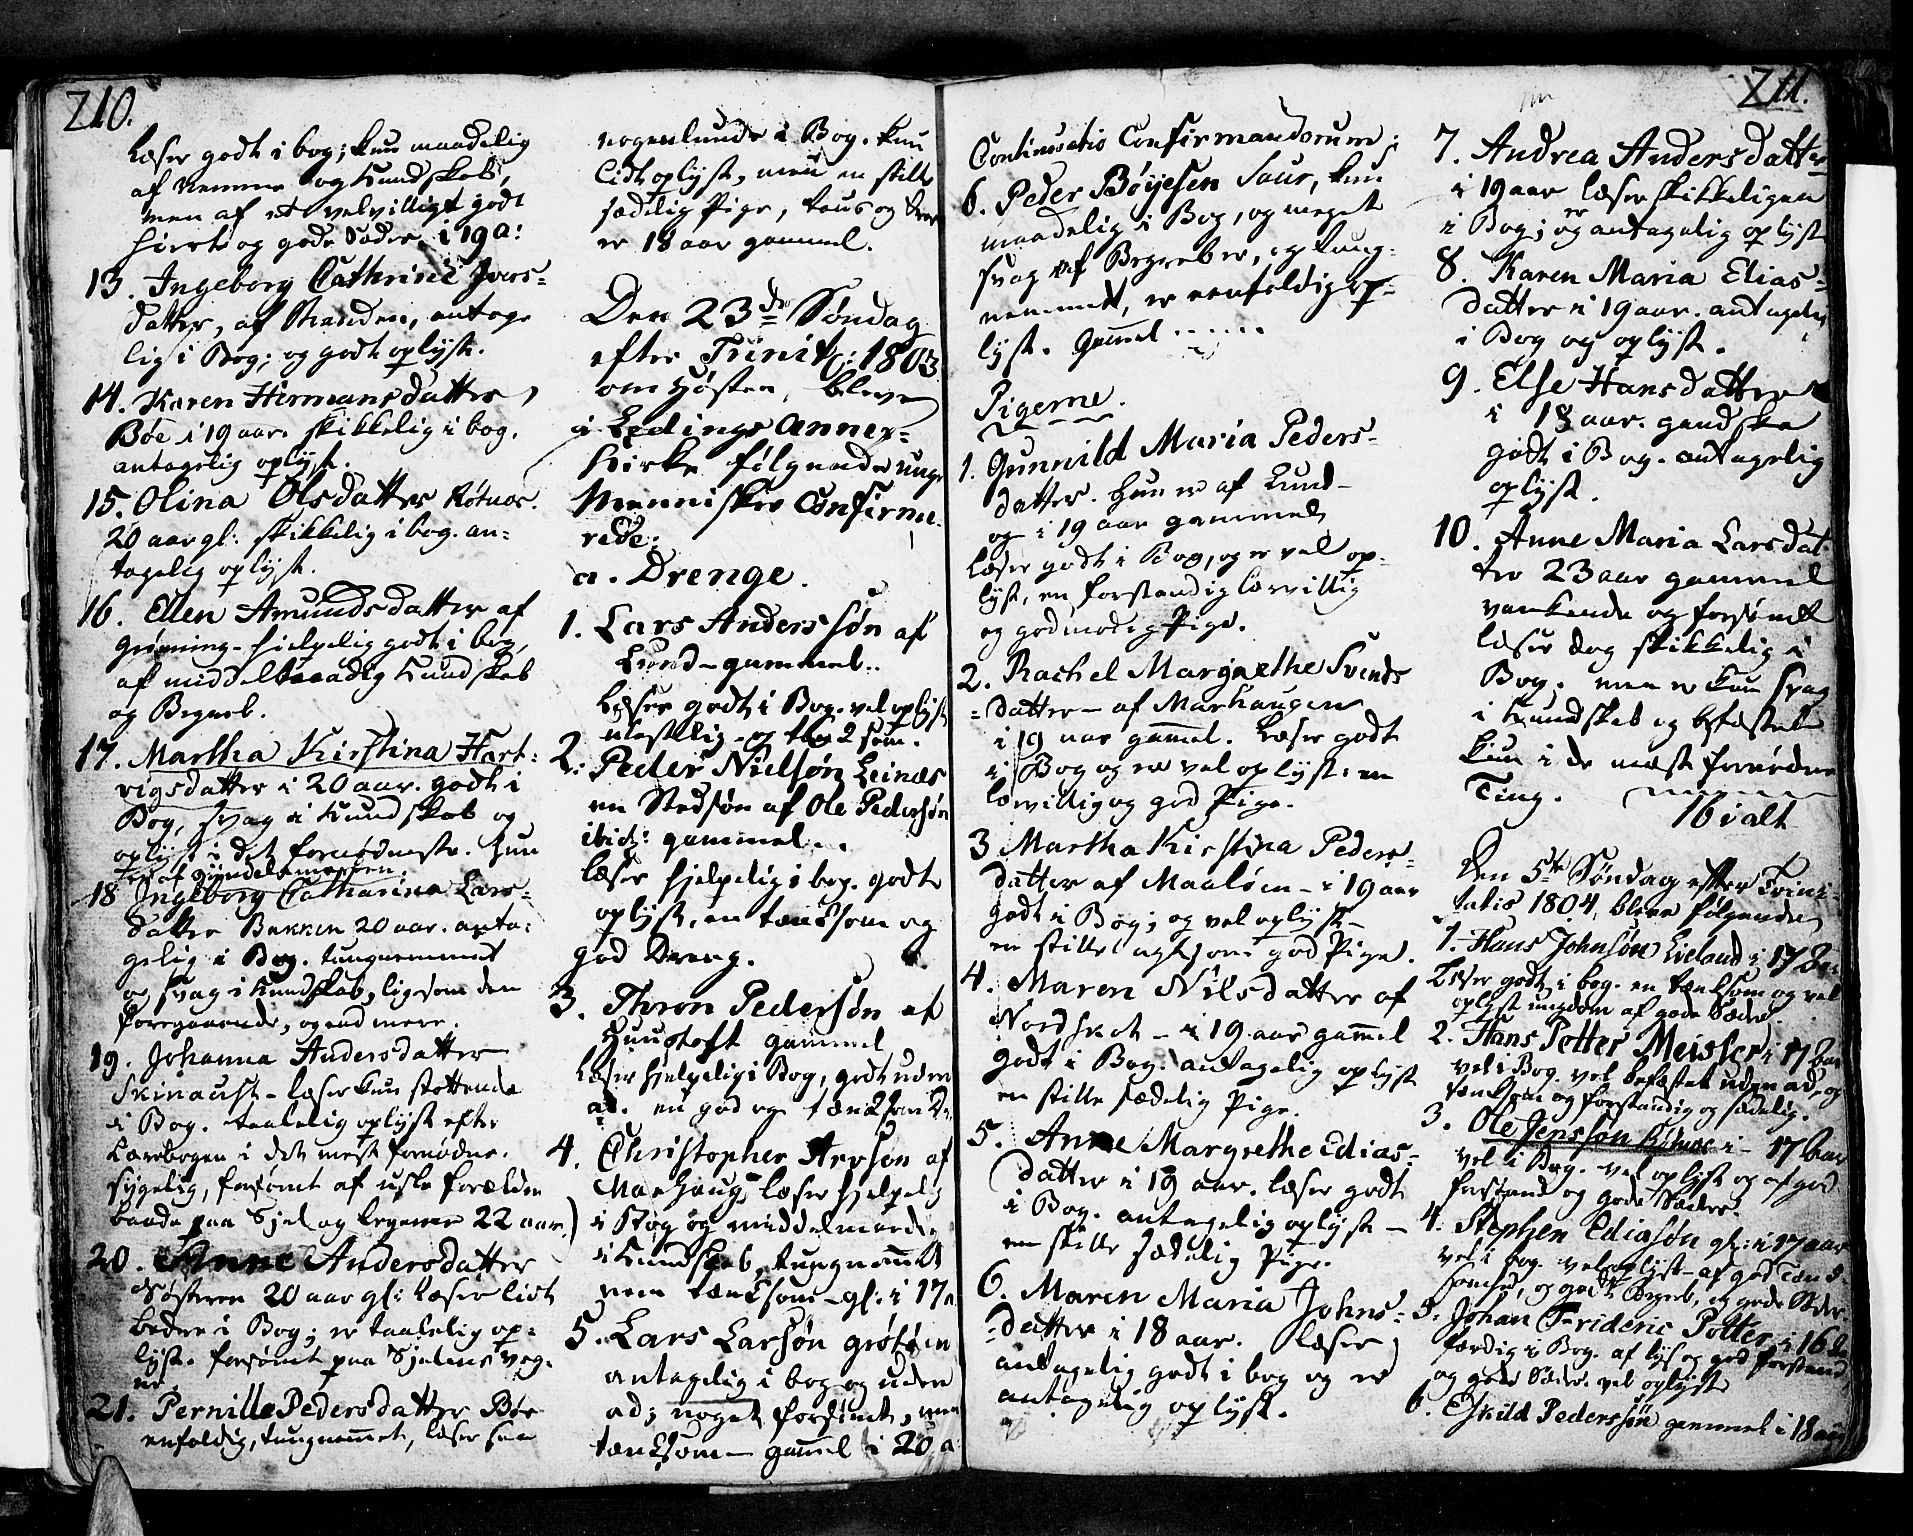 210.
læser godt i bog; kun maadelig
af Nemme og Kundskab,
men af et velvilligt godt
Hierte og gode Sæder. i 19 a:
13. Ingeborg Cathrine Ivers-
datter, af Stranden, antage
lig i Bog; og godt oplyst.
14. Karen Hermansdatter,
Bøe i 19 aar. skikkelig i bog.
antagelig oplyst.
15. Olina Olsdatter Røtnes.
20 aar gl: skikkelig i bog. an-
tagelig oplyst.
16. Ellen Amundsdatter af
Grønning - hielpelig godt i bog,
af middelmaadig Kundskab
og Begreb.
17. Martha Kirstina Hart-
vigsdatter i 20 aar. godt i
Bog, svag i Kundskab og
oplyst i det fornødneste. Hun
er af
18 Ingeborg Catharina Lars-
datter Bakken 20 aar. anta-
gelig i Bog. tungnemmet
og svag i Kundskab, ligesom den
foregaaende, og end mere.
19. Johanna Andersdatter
Skinaust - læser kun støttende
i Bog. taalelig oplyst efter
Lærebogen i det mest fornødne.
sygelig, forsømt af usle forældre
baade paa Siel og Legeme 22 aar.
20. Anne Andersdatter
Søsteren 20 aar gl: læser lidt
bedre i Bog; er taalelig op-
lyst. forsømt paa Sielens veg-
ne.
21. Pernille Pedersdatter Bøe
enfoldig, tungnemmet, læser saa
nogenlunde i Bog. kun
lidt oplyst, men en stille
sædelig Pige, taus og
er 18 aar gammel.
Den 23de Søndag
efter Trinit: 1803
om Høsten, bleve
i Ledings Annex-
Kirke følgende unge
Mennisker Confirme-
rede.
a. Drenge.
1. Lars Anderssøn af
Lund - gammel..
læser godt i Bog. vel oplyst
ulastelig - og tænksom.
2. Peder Nielsøn Leinæs
en Stedsøn af Ole Pedersøn
ibid: gammel..
læser hielpelig i bog. godt
oplyst, en tænksom og
god Dreng.
3. Thron Pedersøn af
Huustoft gammel
læser hielpelig i Bog, godt uden
ad. en god og tænksom
4. Christopher Arvsen af
Marhaug, læser hielpelig
i Bog og middelmaadig
i Kundskab, tungnemmet
men tænksom - gl: i 17 a
5. Lars Larsøn grøtøen
antagelig i bog og uden
ad; noget forsømt, men
tænksom - gammel i 20 a
211.
Continuatio Confirmandorum;
6. Peder Bøyesen Saur, kun
maadelig i Bog, og meget
svag af Begreber, og tung-
nemmet, er eenfoldig op-
lyst. Gammel ......
Pigerne.
1. Gunnild Maria Peders-
datter. Hun er af Lund -
og i 19 aar gammel
læser godt i Bog, og er vel op-
lyst, en forstandig lærvillig
og godmodig Pige.
2. Rachel Margrethe Svends
datter - af Marhaugen
i 19 aar gammel. Læser godt
i Bog og er vel oplyst. en
lærvillig og god Pige.
3 Martha Kirstina Peders-
datter af Maaløen - i 19 aar
godt i Bog; og vel oplyst -
en stille agtsom god Pige.
4. Maren Nilsdatter af
Nordskot - i 19 aar gammel
godt i Bog. antagelig oplyst
en stille sædelig Pige.
5. Anne Margrethe Elias-
datter i 19 aar. læser godt
i Bog. antagelig oplyst -
en stille sædelig Pige.
6. Maren Maria Johns-
datter i 18 aar. læser
antagelig godt i bog og er
antagelig oplyst.
7. Andrea Andersdatter
i 19 aar læser skikkeligen
i Bog; og er antagelig oplyst
8. Karen Maria Elias-
datter i 19 aar. antagelig
i Bog og oplyst.
9. Else Hansdatter
i 18 aar. gandske
godt i Bog. antagelig
oplyst.
10. Anne Maria Larsdat-
ter 23 aar gammel
vankende og forsømt
læser dog skikkelig i
Bog; men er kun svag
i Kundskab og befæstet
kun i de mæst fornødne
Ting.
16 i alt
Den 5te Søndag efter Trini-
tatis 1804, bleve følgende
1. Hans Johnsøn Lieland i 17 aar
læser godt i bog. en tænksom og vel
oplyst ungdom af gode Sæder
2. Hans Petter Meisser i 17 aar
vel i Bog. vel befæstet uden ad, og
tænksom og forstandig og sædelig.
3. Ole Jenssøn Røtnæs i - 17 aar
vel i Bog. vel oplyst og af god
forstand og gode Sæder.
4. Stephen Eliasøn gl: i 17 aar
vel i bog. vel oplyst - af god Tænk-
somhed, og godt Begreb, og gode Sæder
5. Johan Frideric Potter i 16 aar
færdig i Bog. af lys og god forstand
og gode Sæder. vel oplyst
6. Eskild Pederssøn gammel i 18 aar